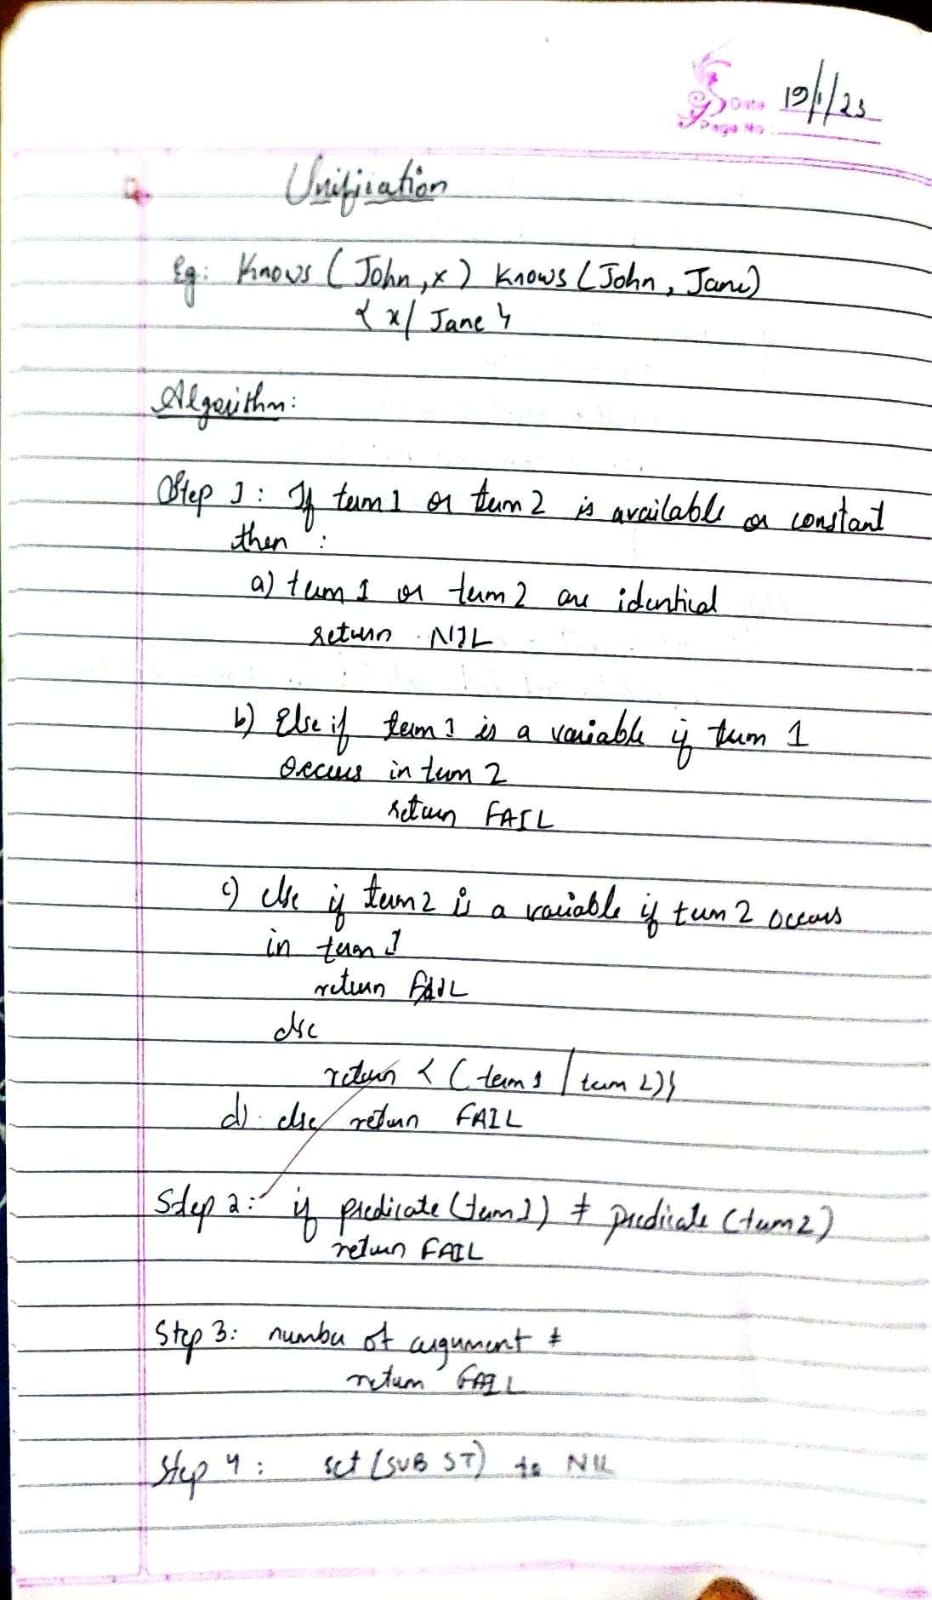 Date 19/1/23
Page No.
Unification
Eg: Knows (John, x) Knows (John, Jane)
{ x/ Jane }
Algorithm:
Step 1: If term 1 or term 2 is available or constant
then :
a) term 1 or term 2 are identical
return NIL
b) Else if term 1 is a variable if term 1
occurs in term 2
return FAIL
c) else if term 2 is a variable if term 2 occurs
in term 1
return FAIL
else
return { (term 1 / term 2)}
d). else return FAIL
Step 2: if predicate (term 1) ≠ predicate (term 2)
return FAIL
Step 3: number of argument ≠
return FAIL
Step 4: set (SUB ST) to NIL